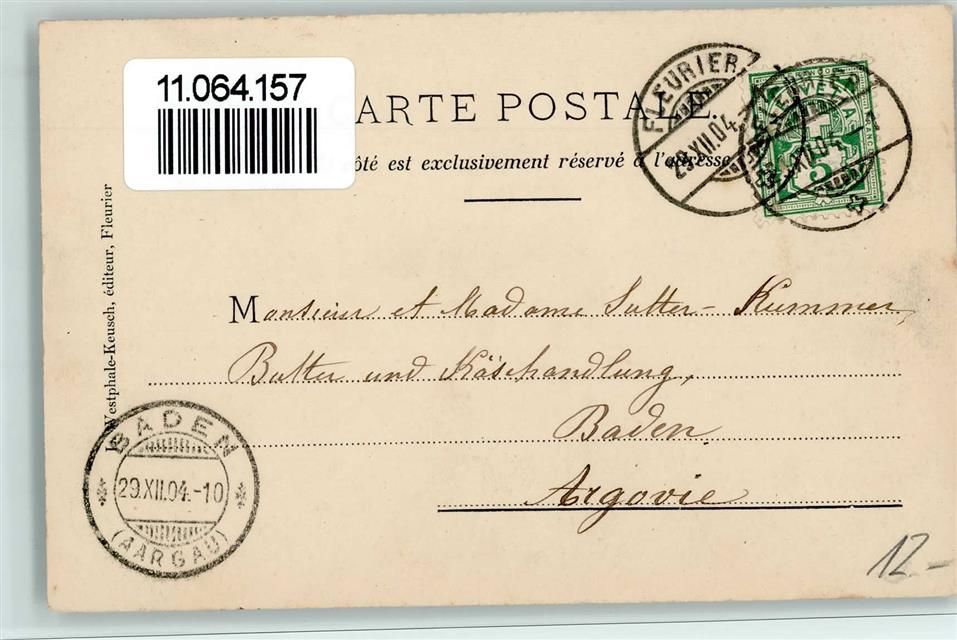 11.064.157
CARTE POSTALE.
côté est exclusivement réservé à l'adresse
FLEURIER
29.XII.04.
HELVETIA
FRANCO
5
Westphale-Keusch, éditeur, Fleurier
Monsieur et Madame Sutter-Kummer,
Butter und Käsehandlung,
Baden
Argovie
BADEN
29.XII.04.-10
(AARGAU)
12.-